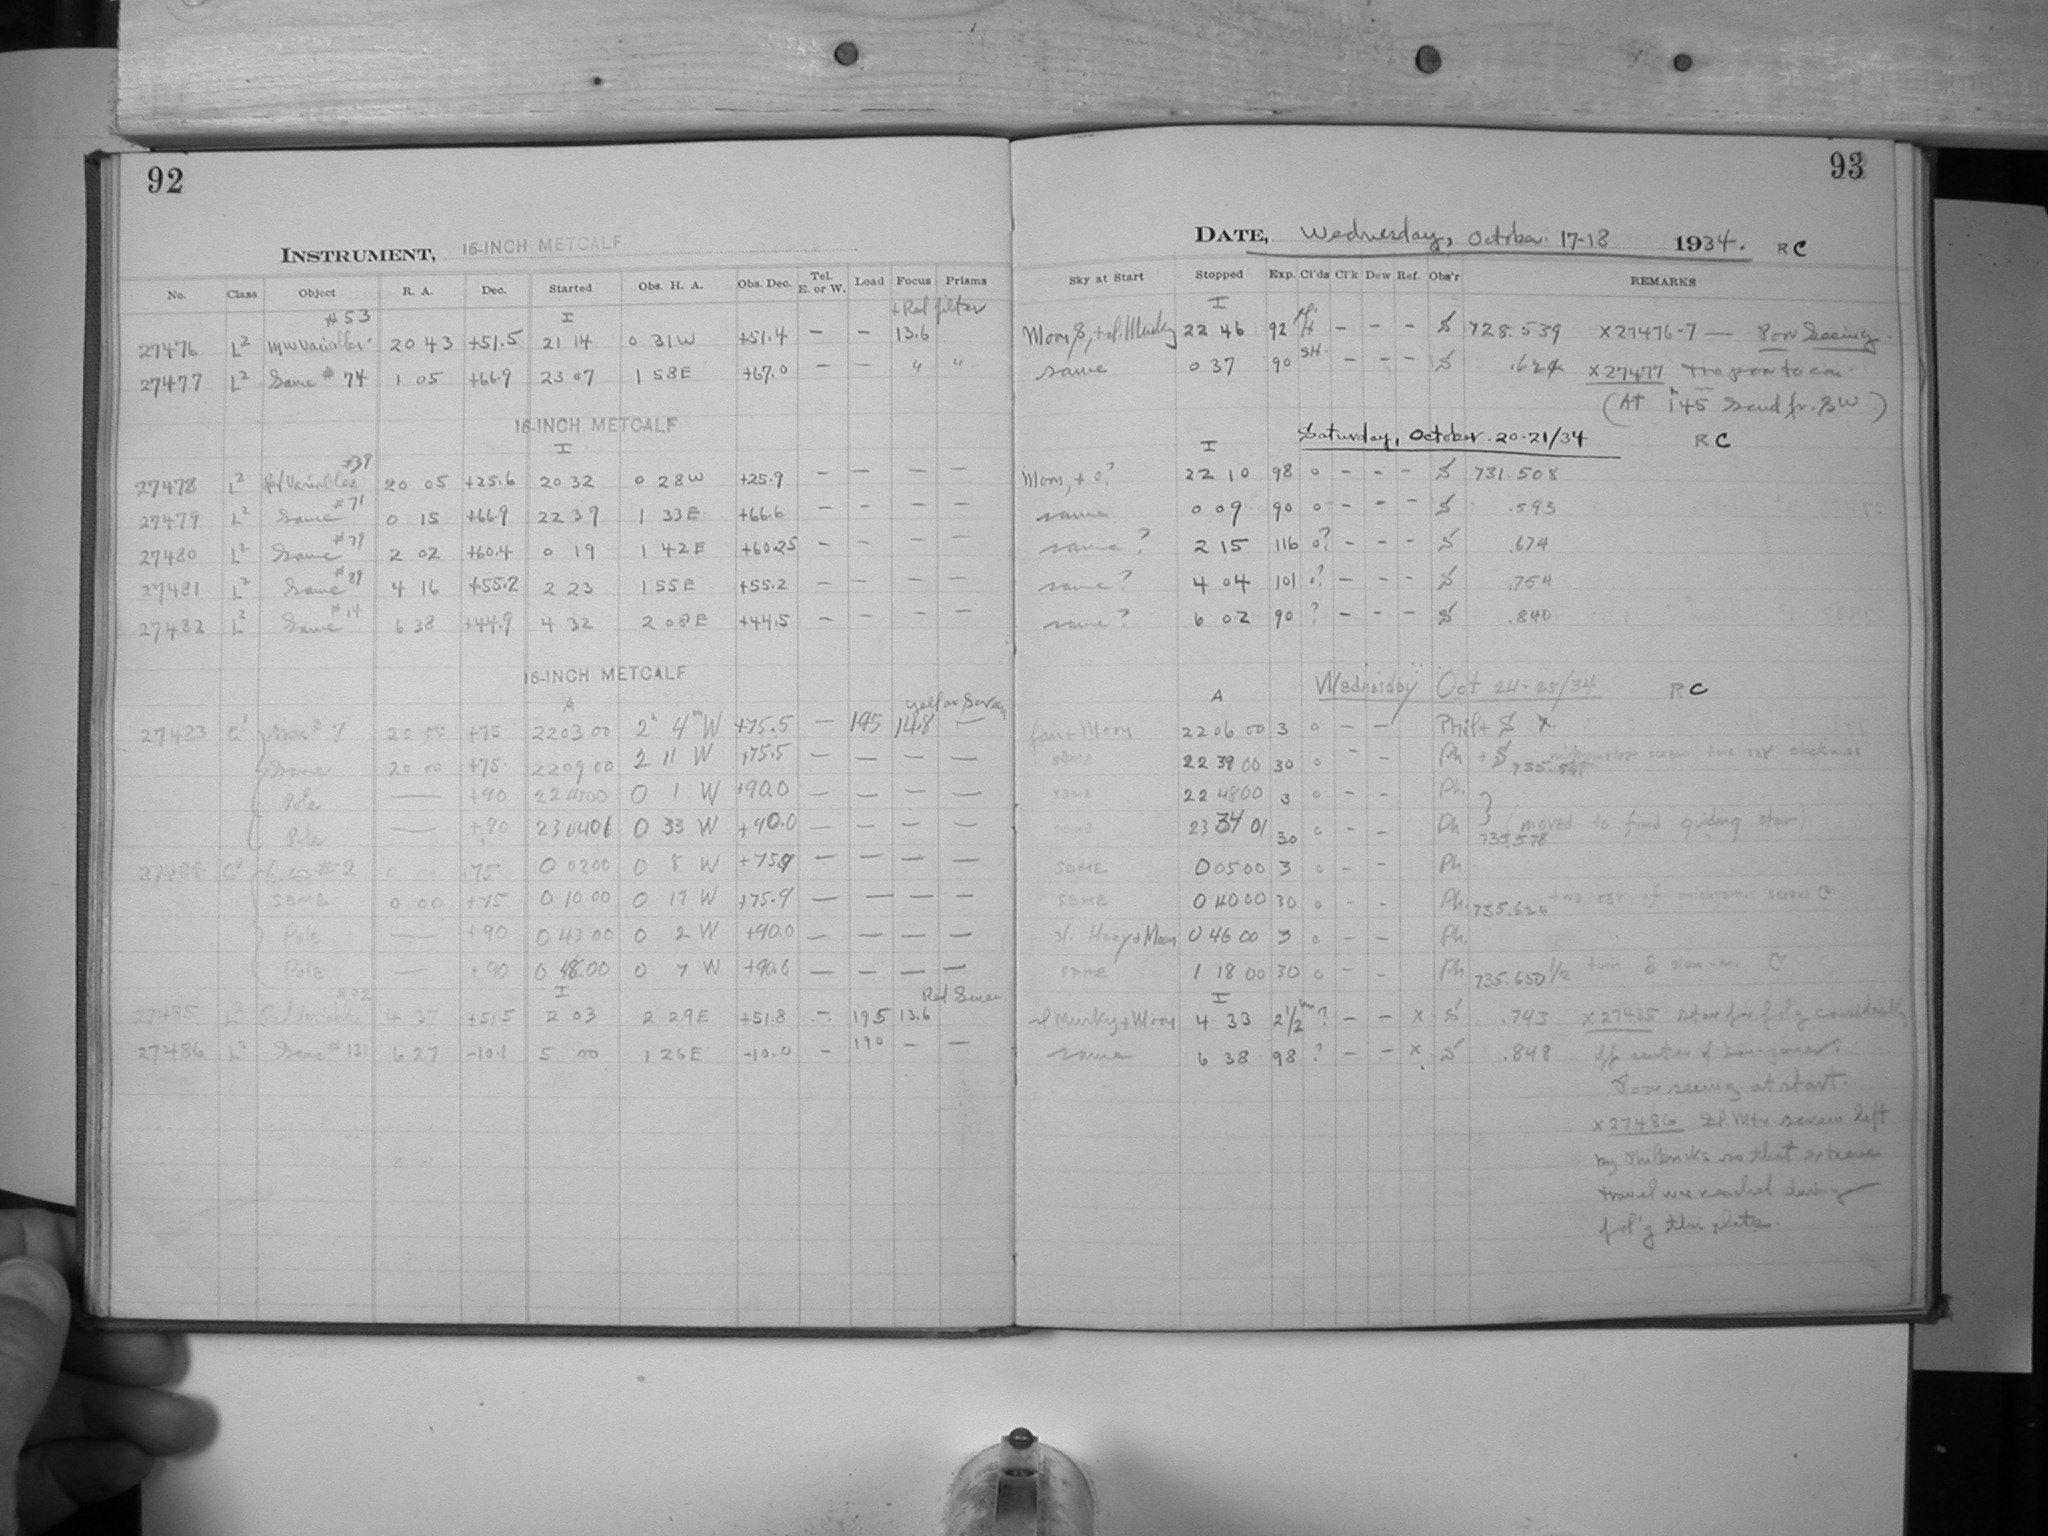 92
INSTRUMENT, 16-INCH METCALF
No. Class Object R. A. Dec. Started Obs. H. A. Obs. Dec. Tel. E. or W. Load Focus Prisms
#53 I + Red filter
27476 L2 MW Variables 20 43 +51.5 21 14 0 31 W +51.4 — — 13.6
27477 L2 Same #74 1 05 +66.9 23 07 1 58 E +67.0 — — " "
16-INCH METCALF
I
27478 L2 Red Variables #39 20 05 +25.6 20 32 0 28 W +25.9 — — — —
27479 L2 Same #71 0 15 +66.9 22 39 1 33 E +66.6 — — — —
27480 L2 Same #79 2 02 +60.4 0 19 1 42 E +60.25 — — — —
27481 L2 Same #89 4 16 +55.2 2 23 1 55 E +55.2 — — — —
27482 L2 Same #14 6 38 +44.9 4 32 2 08 E +44.5 — — — —
16-INCH METCALF
A yellow Screen
27483 C1 7 20 00 +75 22 03 00 2h 4m W +75.5 — 195 14.8 —
Same 20 00 +75 22 09 00 2 11 W +75.5 — — — —
Pole — +90 22 45 00 0 1 W +90.0 — — — —
Pole — +90 23 04 01 0 33 W +90.0 — — — —
27484 C1 #2 0 00 +75 0 02 00 0 8 W +75.9 — — — —
SAME 0 00 +75 0 10 00 0 17 W +75.9 — — — —
Pole — +90 0 43 00 0 2 W +90.0 — — — —
Pole — +90 0 48 00 0 7 W +90.0 — — — —
I Red Screen
27485 L2 Red Variables #92 4 37 +51.5 2 03 2 29 E +51.8 — 195 13.6
27486 L2 Same #131 6 27 -10.1 5 00 1 26 E -10.0 — 190 — —
93
DATE, Wednesday, October 17-18 1934. RC
Sky at Start Stopped Exp. Cl'ds Cl'k Dew Ref. Obs'r REMARKS
I
Moon, Murky 22 46 92 H — — — S 728.539 X27476-7 — Poor Seeing.
same 0 37 90 SH. — — — S .624 X27477
(At 1h45 )
Saturday, October 20-21/34 RC
I
Moon, + 0? 22 10 98 0 — — — S 731.508
same 0 09 90 0 — — — S .593
same? 2 15 116 0? — — — S .674
same? 4 04 101 0? — — — S .754
same? 6 02 90 ? — — — S .840
Wednesday Oct 24-25/34 RC
A
fair + Moon 22 06 00 3 0 — — Ph + S
SAME 22 39 00 30 0 — — Ph + S micrometer screw two rev clockwise
SAME 22 48 00 3 0 — — Ph.
SAME 23 34 01 30 0 — — Ph 735.578 (moved to find guiding star)
SAME 0 05 00 3 0 — — Ph.
SAME 0 40 00 30 0 — — Ph. 735.620 two rev of microm. screw
sl. Hazy + Moon 0 46 00 3 0 — — Ph.
SAME 1 18 00 30 0 — — Ph 735.650 1/2 turn
I
sl Murky + Moon 4 33 2 1/2 h ? — — X S .743 X27485 star for fol'g considerably
same 6 38 98 ? — — X S .848 off center of
Poor seeing at start.
X27486 screw left
by so that extreme
travel was reached during
fol'g this plate.